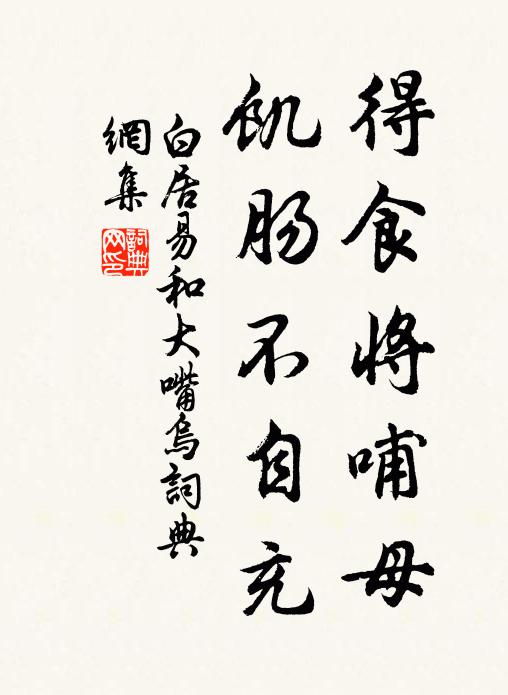 得食將哺母
飢腸不自充
白居易和大嘴烏詞典
網集
詞典
网印